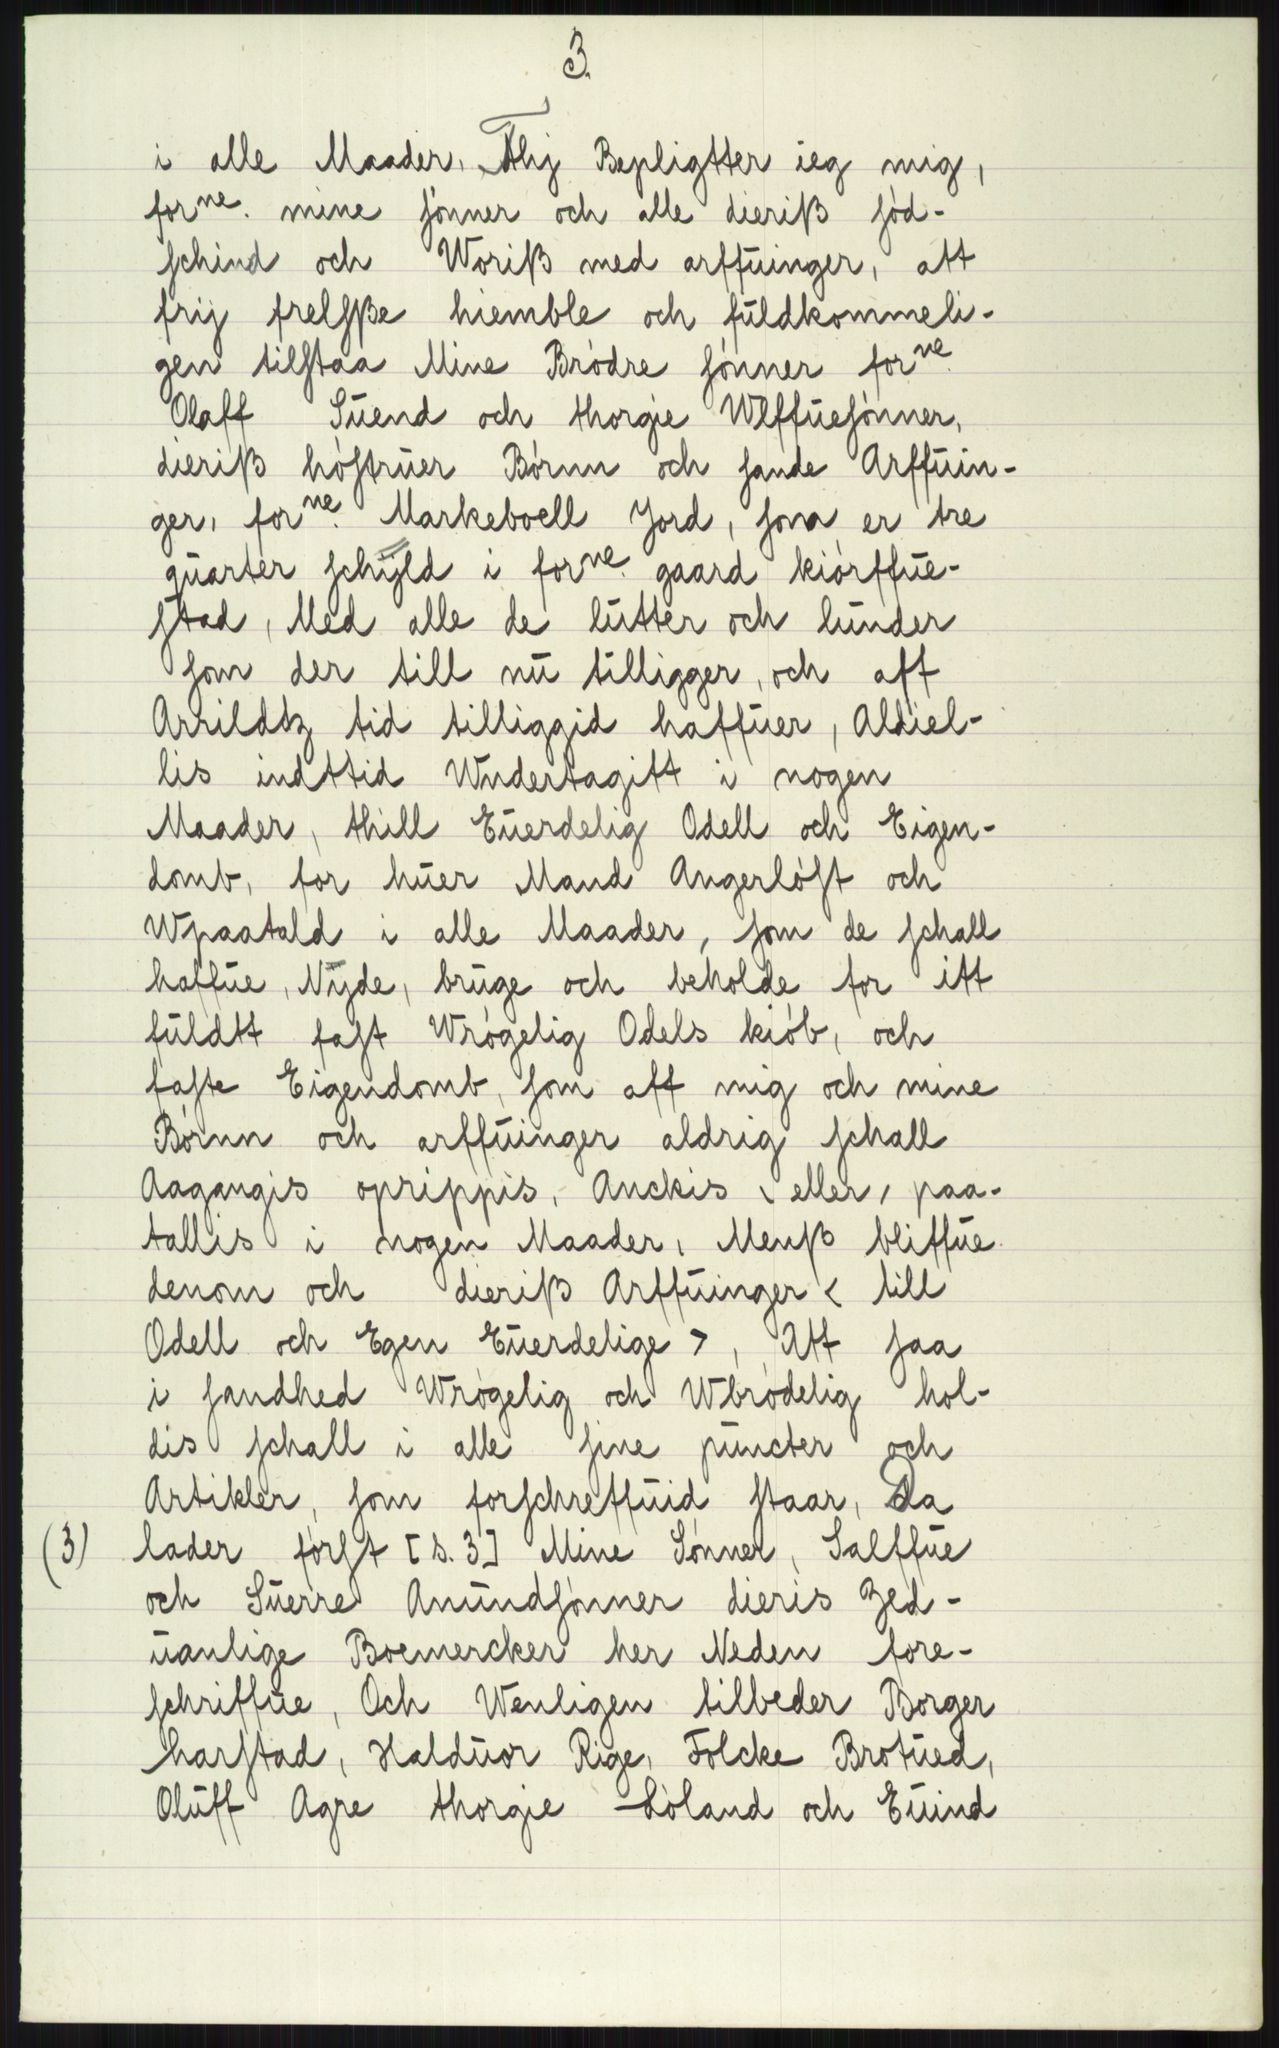 3.
i alle Maader, Thj Bepligtter ieg mig,
forne. mine sönner och alle dieriß söd-
schind och Woriß med arffuinger, att
frij frelsße hiemble och fuldkommeli-
gen tilstaa Mine Brödre sönner forne.
Olaff Suend och thorgie Wlffuesönner,
dieriß höstruer Börnn och sande Arffuin-
ger, forne. Markeboell Jord, som er tre
quarter schÿld i forne. gaard kiörffue-
stad, Med alle de lutter och lunder
som der till nu tilligger, och aff
Arrildtz tid tilliggid haffuer, Aldiel-
lis indttid Wndertagitt i nogen
Maader, thill Euerdelig Odell och Eigen-
domb, for huer Mand Angerlöst och
Wpaatald i alle Maader, som de schall
haffue, Nÿde, bruge och beholde for itt
fuldtt fast Wrögelig Odels kiöb, och
faste Eigendomb, som aff mig och mine
Börnn och arffuinger aldrig schall
Aagangis oprippis, Anckis, eller, paa-
tallis i nogen Maader, Menß bliffue
denom och dieriß Arffuinger < till
Odell och Egen Euerdelige >, Att saa
i sandhed Wrögelig och Wbrödelig hol-
dis schall i alle sine puncter och
Artikler, som forschreffuid staar, Da
(3) lader först [s. 3] Mine Sönner, Salffue
och Suerre Anundsönner dieris Zed-
uanlige Boemercker her Neden fore-
schriffue, Och Wenligen tilbeder Borger
harstad, Halduor Rige, Folcke Brotued,
Oluff Agre thorgie Löland och Euind